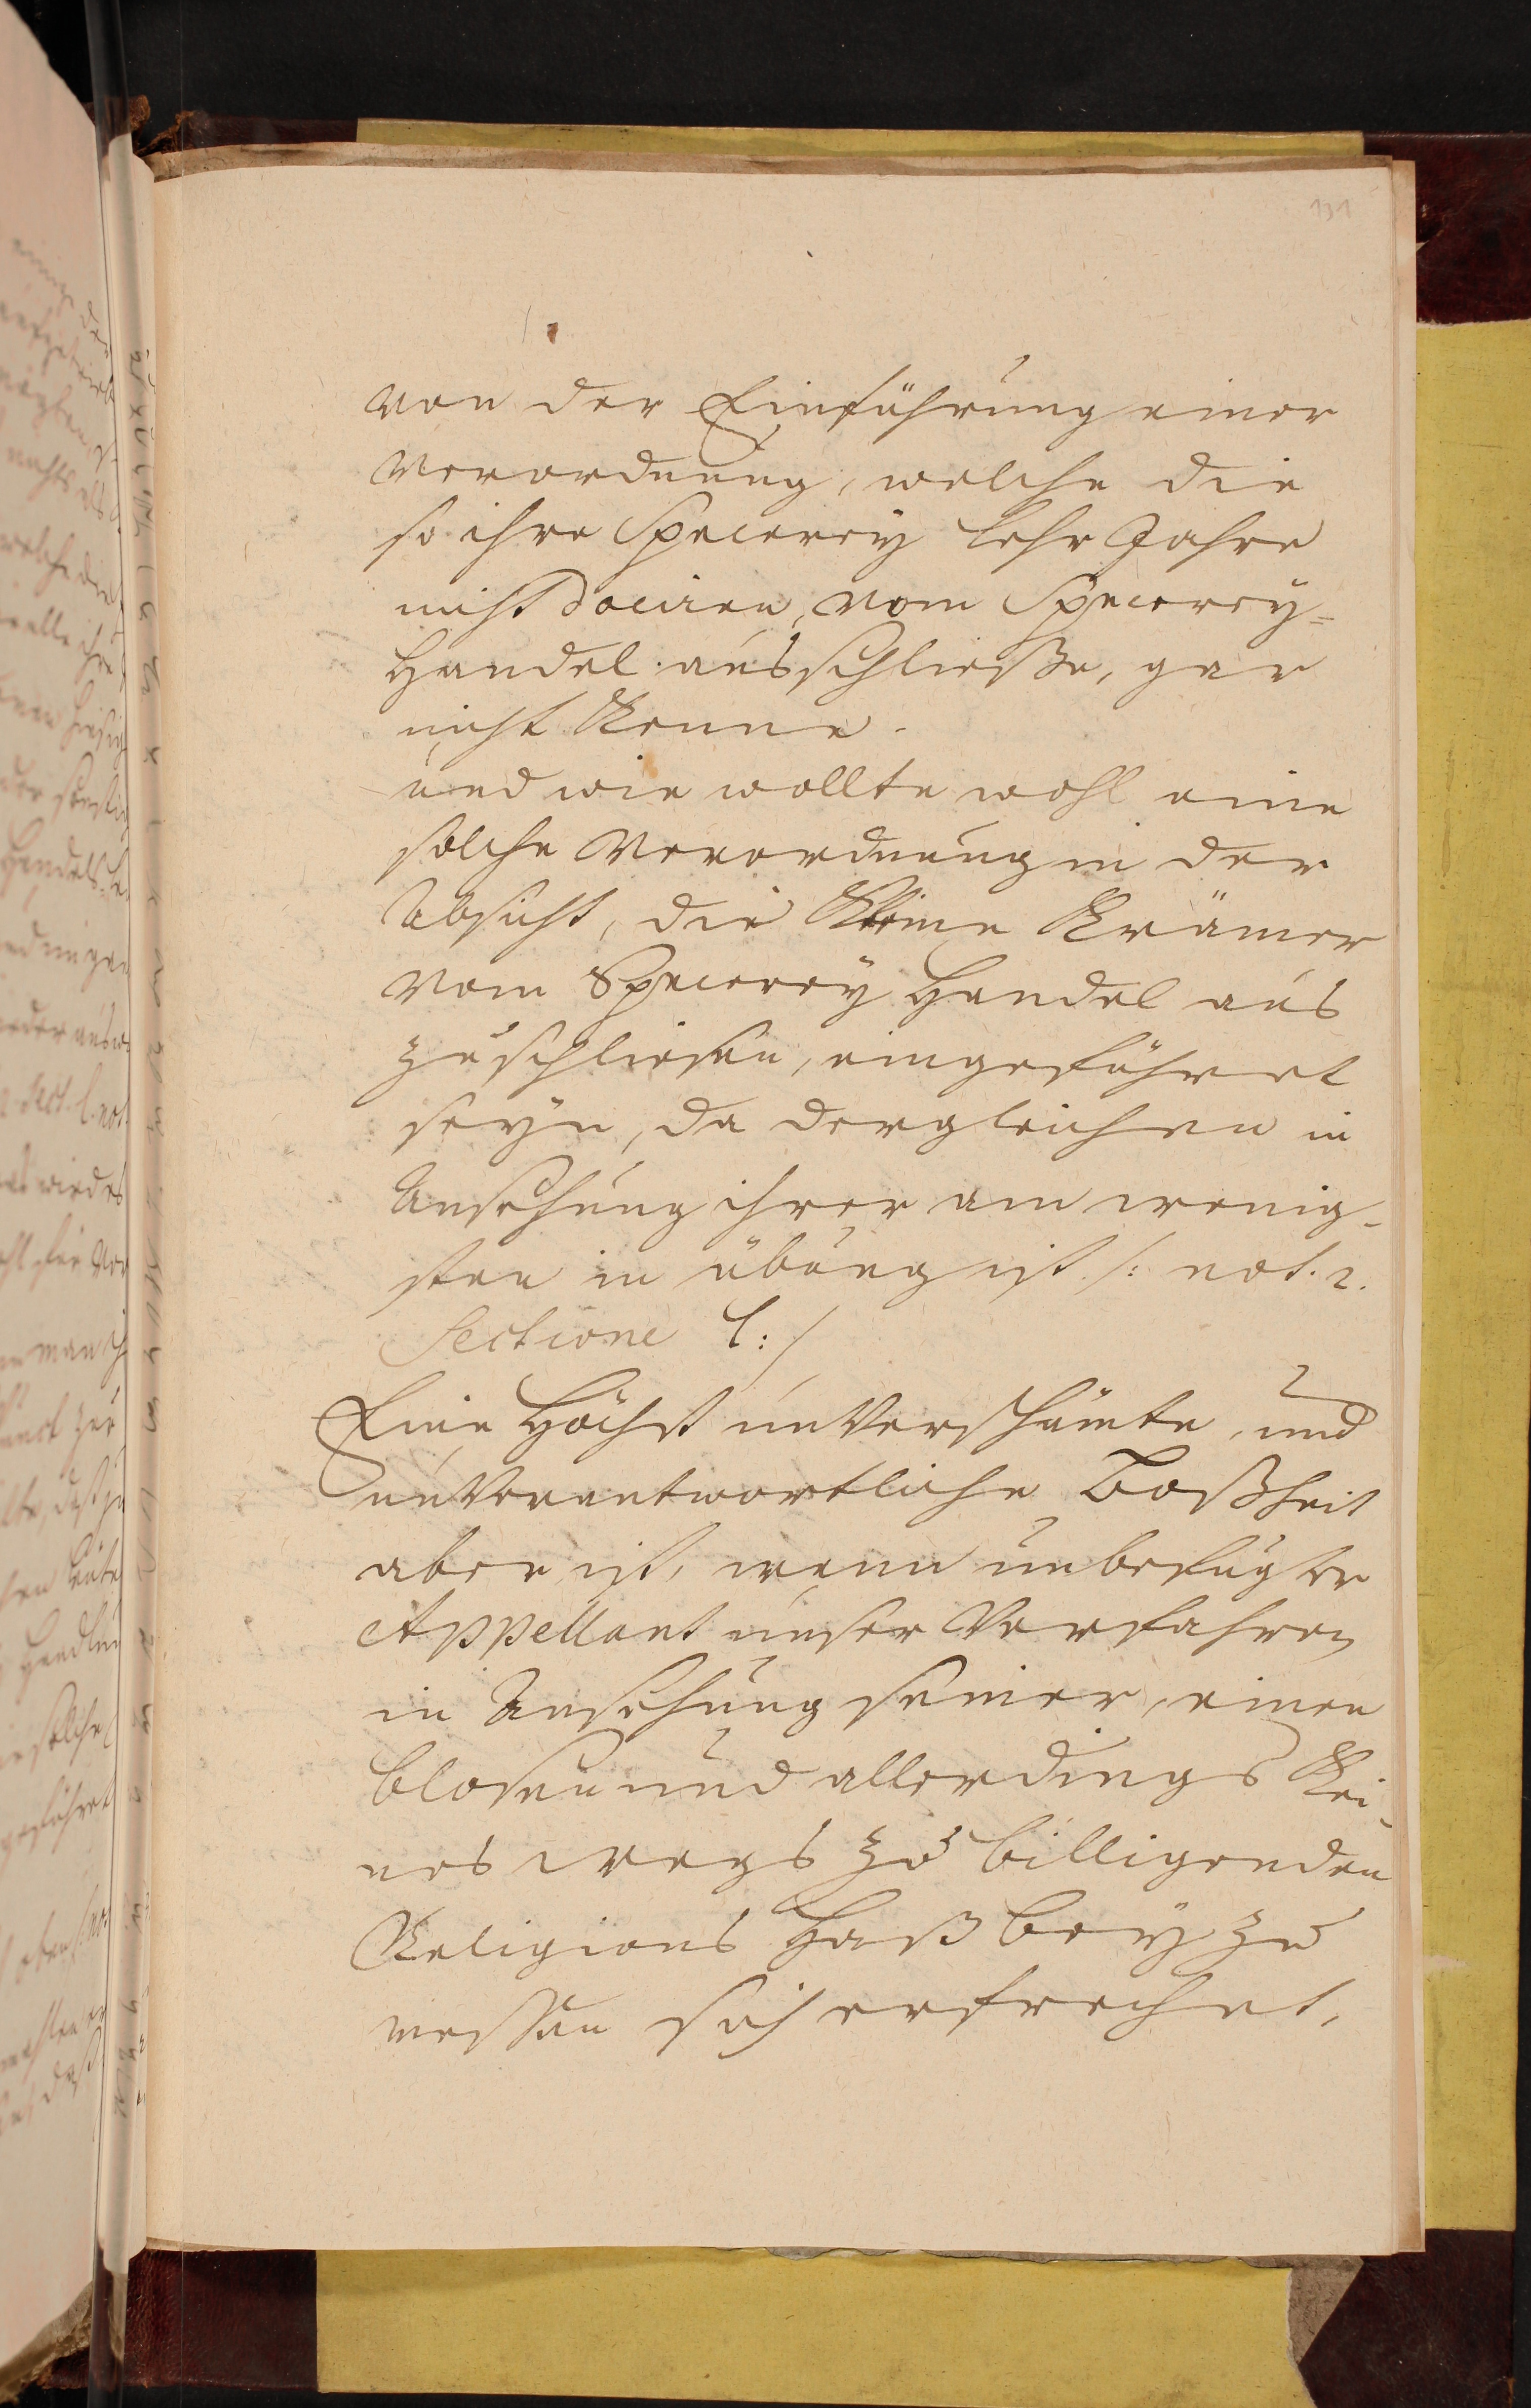 131
von der Einführung einer
Verordnung, welche die
so ihre Specerey Lehr Jahre
nicht dociren, vom Specerey=
Handel ausschließe, gar
nicht Kenne.
und wie wollte wohl eine
solche Verordnung in der
Absicht, die Kleine Krämer
vom Specerey Handel aus
zuschliesen, eingeführet
seyn, da dergleichen in
Ansehung ihrer am wenig-
sten in übung ist. /: not. 2.
Sectione C:/
Eine Höchst unVerschämte, und
unVerantwortliche Boßheit
aber ist, wenn unbefugter
Appellant unser Verfahren
in Ansehung seiner, einen
blosen und allerdings Kei-
nes wegs zu billigenden
Religions Haß bey zu
messen sich erfrechet,